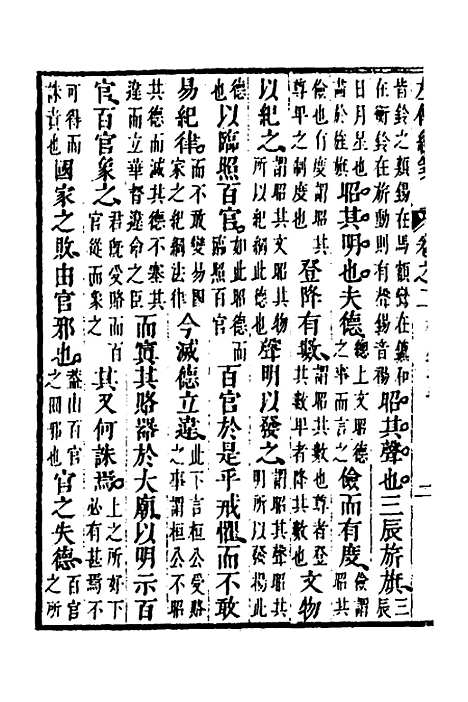 左傳經 卷之二
皆鈴之類鍚在馬額鸞在鑣和在衡鈴在旂動則有聲鍚音楊昭其聲也三辰旂旗三辰
日月星也畫於旌旗昭其明也夫德總上文昭德之事而言之儉而有度儉謂昭其
儉也有度謂昭其尊卑之制度也登降有數謂昭其數也尊者登其數卑者降其數也文物
以紀之謂昭其文昭其物所以紀其德也聲明以發之謂昭其聲昭其明所以發揚此
德也以臨照百官如此昭德而臨照百官百官於是乎戒懼而不敢
易紀律而不敢變易國家之紀綱法律今滅德立違此下言桓公受賂之事謂桓公不昭
其德而滅其德不塞其違而立華督違命之臣而寘其賂器於大廟以明示百
官百官象之君既受賂而百官從而象之其又何誅焉上之所好下必有甚焉不
可得而誅責也國家之敗由官邪也蓋由百官之回邪也官之失德百官之所